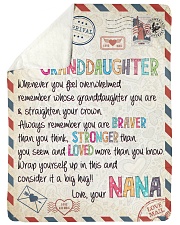 GRANDDAUGHTER
Whenever you feel overwhelmed
remember whose granddaughter you are
& straighten your crown.
Always remember you are BRAVER
than you think, STRONGER than
you seem and LOVED more than you know
Wrap yourself up in this and
consider it a big hug!!
Love, your NANA
LOVE
MAIL